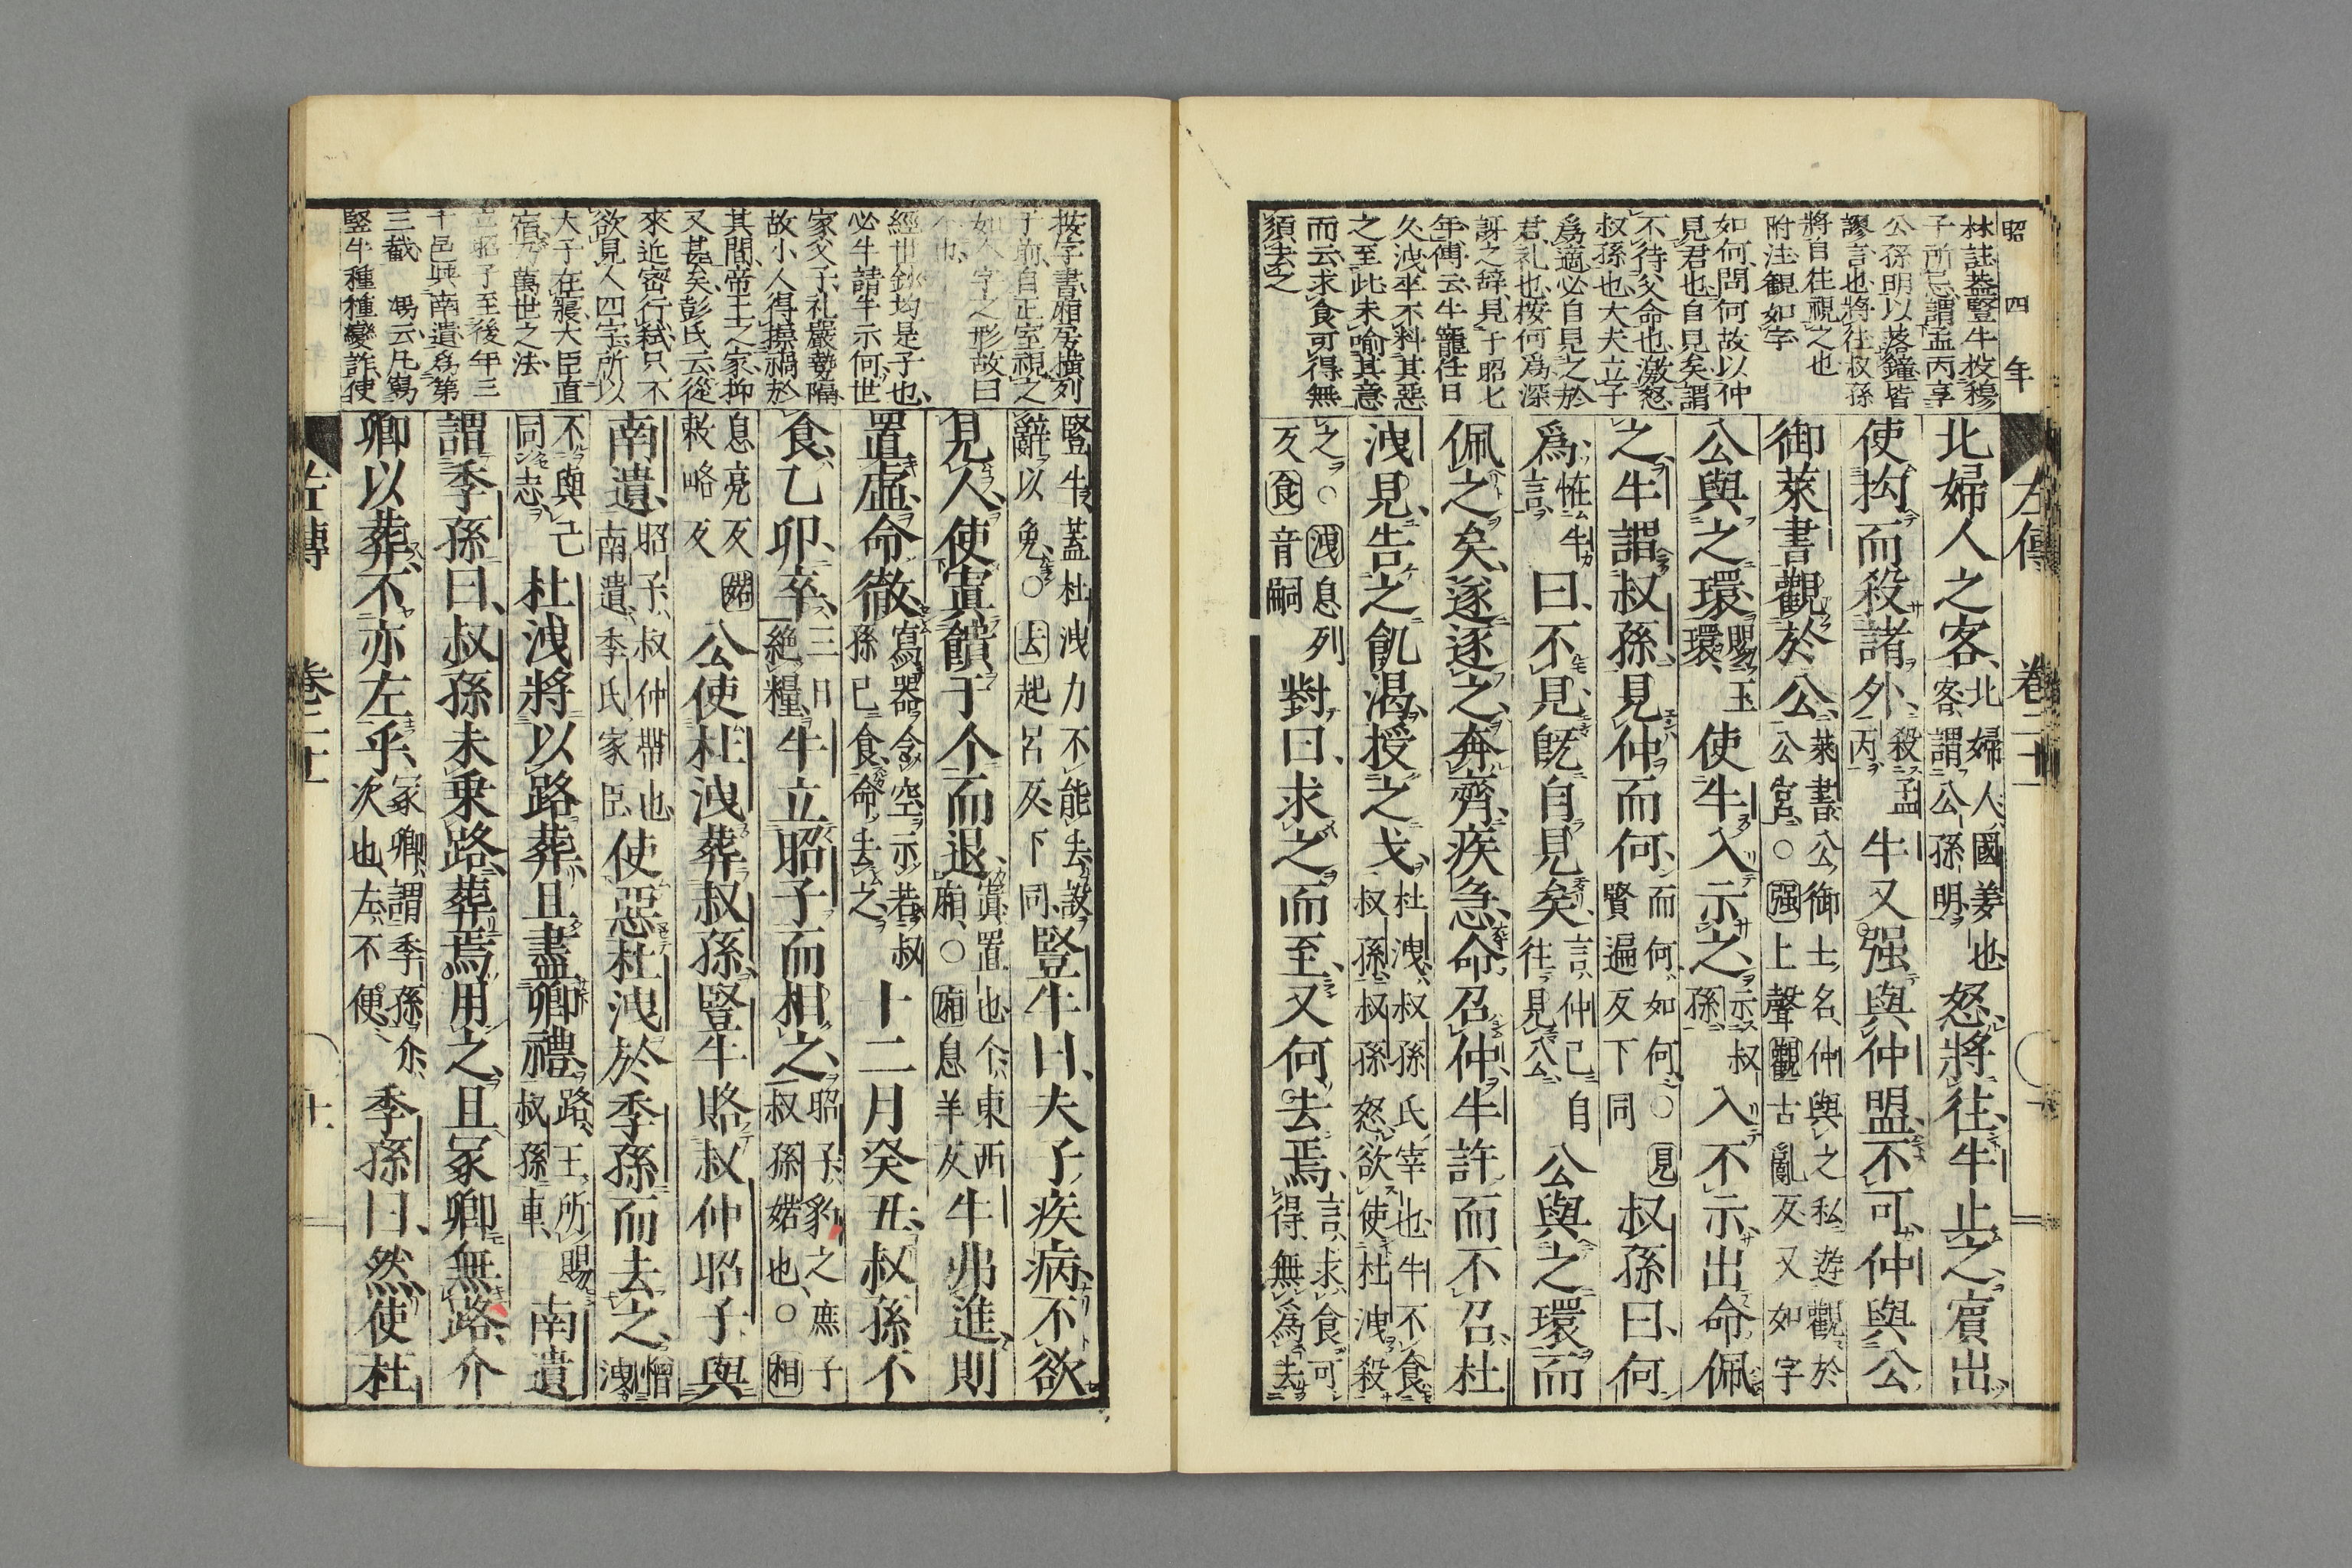 昭四年
左傳 卷二十一
林註蓋豎牛投穆
子所忌謂孟丙享
公孫明以落鐘皆
謬言也將往叔孫
將自往視之也
附注觀如字
如何問何故以仲
見君也自見矣謂
不待父命也激怒
叔孫也大夫立子
爲適必自見之於
君礼也按何爲深
訝之辞見于昭七
年傳云牛寵任日
久洩卒不料其惡
之至此未喻其意
而云求食可得無
須去之
北婦人之客北婦人國姜也客謂公孫明怒將往牛止之賓出
使拘而殺諸外殺孟丙牛又强與仲盟不可仲與公
御萊書觀於公萊書公御士名仲與之私遊觀於公宮○强上聲觀古亂反又如字
公與之環賜玉環使牛入示之示叔孫入不示出命佩
之牛謂叔孫見仲而何而何如何○見賢遍反下同叔孫曰何
爲恠牛言曰不見既自見矣言仲已自往見公公與之環而
佩之矣遂逐之奔齊疾急命召仲牛許而不召杜
洩見告之飢渴授之戈杜洩叔孫氏宰也牛不食叔孫叔孫怒欲使杜洩殺
之○洩息列反食音嗣對曰求之而至又何去焉言求食可得無爲去
按字書廂夾橫列
于前自正室視之
如个字之形故曰
个也
經世鈔均是子也
必牛請牛示何世
家父子礼嚴勢隔
故小人得操禍於
其間帝王之家抑
又甚矣彭氏云從
來近密行弒只不
欲見人四字所以
大子在寢大臣直
宿乃萬世之法
立昭子至後年三
十邑與南遺爲第
三截 馮云凡寫
豎牛種種變詐使
豎牛蓋杜洩力不能去設辭以免○去起呂反下同豎牛曰夫子疾病不欲
見人使寘饋于个而退寘置也个東西廂○廂息羊反牛弗進則
置虛命徹寫器令空示若叔孫已食命去之十二月癸丑叔孫不
食乙卯卒三日絶糧牛立昭子而相之昭子豹之庶子叔孫婼也○相
息亮反婼敕略反公使杜洩葬叔孫豎牛賂叔仲昭子與
南遺昭子叔仲帶也南遺季氏家臣使惡杜洩於季孫而去之憎洩
不與己同志杜洩將以路葬且盡卿禮路王所賜叔孫車南遺
謂季孫曰叔孫未乗路葬焉用之且冢卿無路介
卿以葬不亦左乎冢卿謂季孫介次也左不便季孫曰然使杜
左傳 卷二十一 十